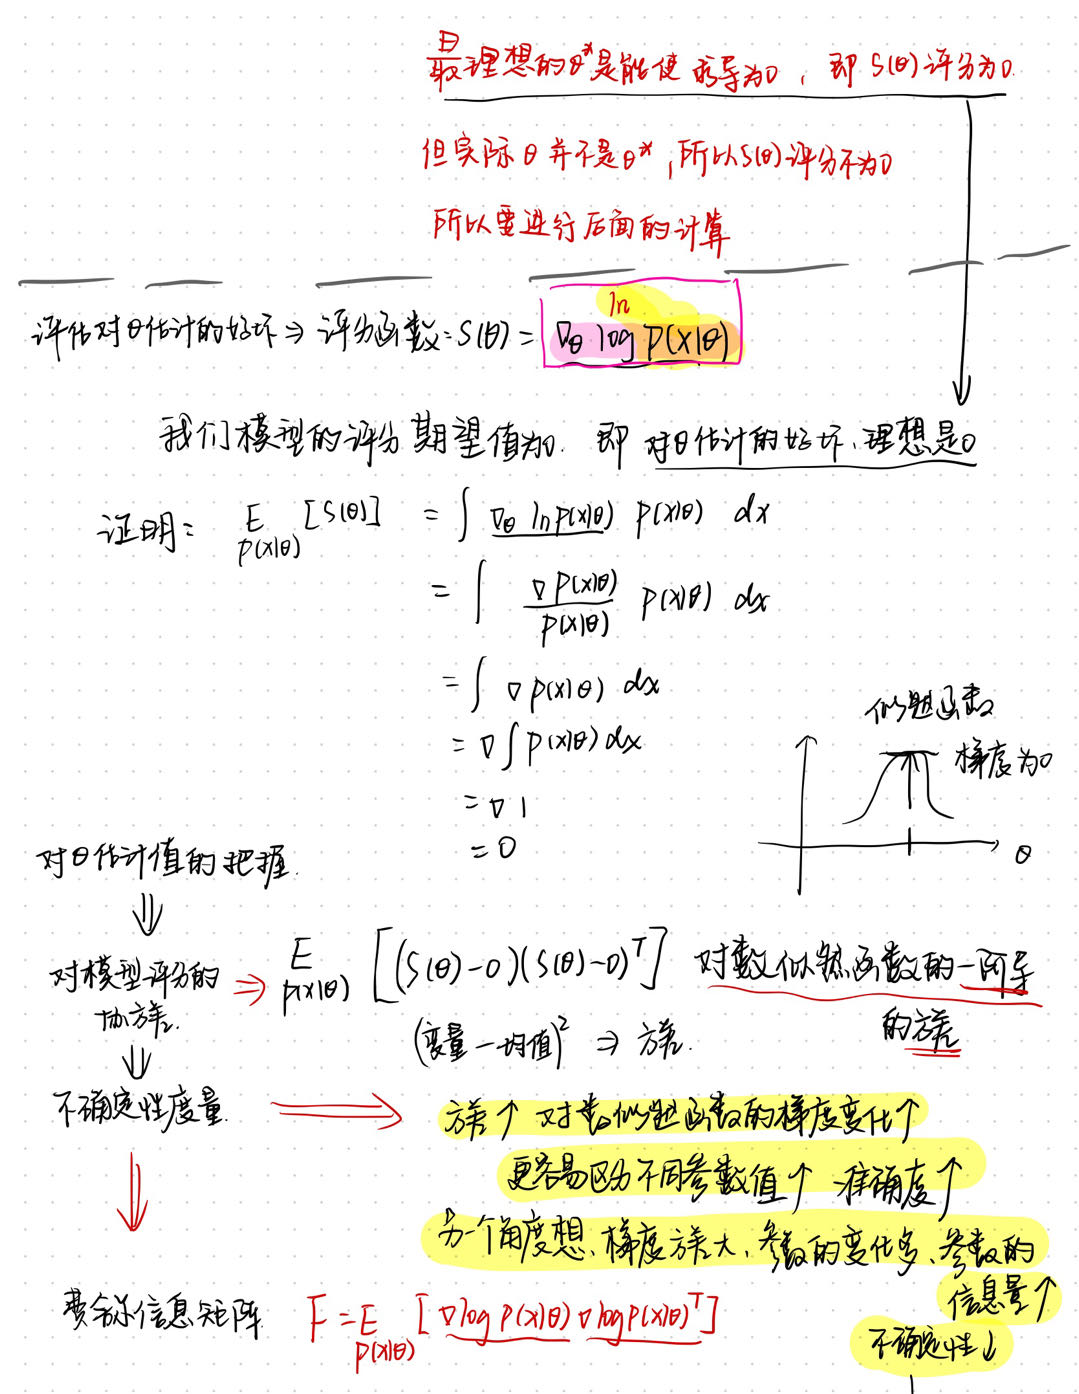 最理想的θ*是能使求导为0，即S(θ)评分为0.
但实际θ并不是θ*,所以S(θ)评分不为0
所以要进行后面的计算
ln
评估对θ估计的好坏⇒评分函数:S(θ)=∇θ log P(x|θ)
我们模型的评分期望值为0. 即对θ估计的好坏、理想是0
证明: E [S(θ)] = ∫ ∇θ ln p(x|θ) p(x|θ) dx
p(x|θ)
= ∫ ∇P(x|θ)/P(x|θ) p(x|θ) dx
= ∫ ∇p(x|θ) dx
= ∇∫p(x|θ)dx
= ∇1
= 0
似然函数
梯度为0
θ
对θ估计值的把握.
⇓
对模型评分的 ⇒ E [(S(θ)-0)(S(θ)-0)^T] 对数似然函数的一阶导
协方差. p(x|θ) 的方差
(变量-均值)² ⇒ 方差.
⇓
不确定性度量. ⇒ 方差↑ 对数似然函数的梯度变化↑
更容易区分不同参数值↑ 准确度↑
另一个角度想、梯度方差大、参数的变化多、参数的
信息量↑
不确定性↓
⇓
费舍尔信息矩阵 F = E [∇log p(x|θ) ∇log p(x|θ)^T]
p(x|θ)